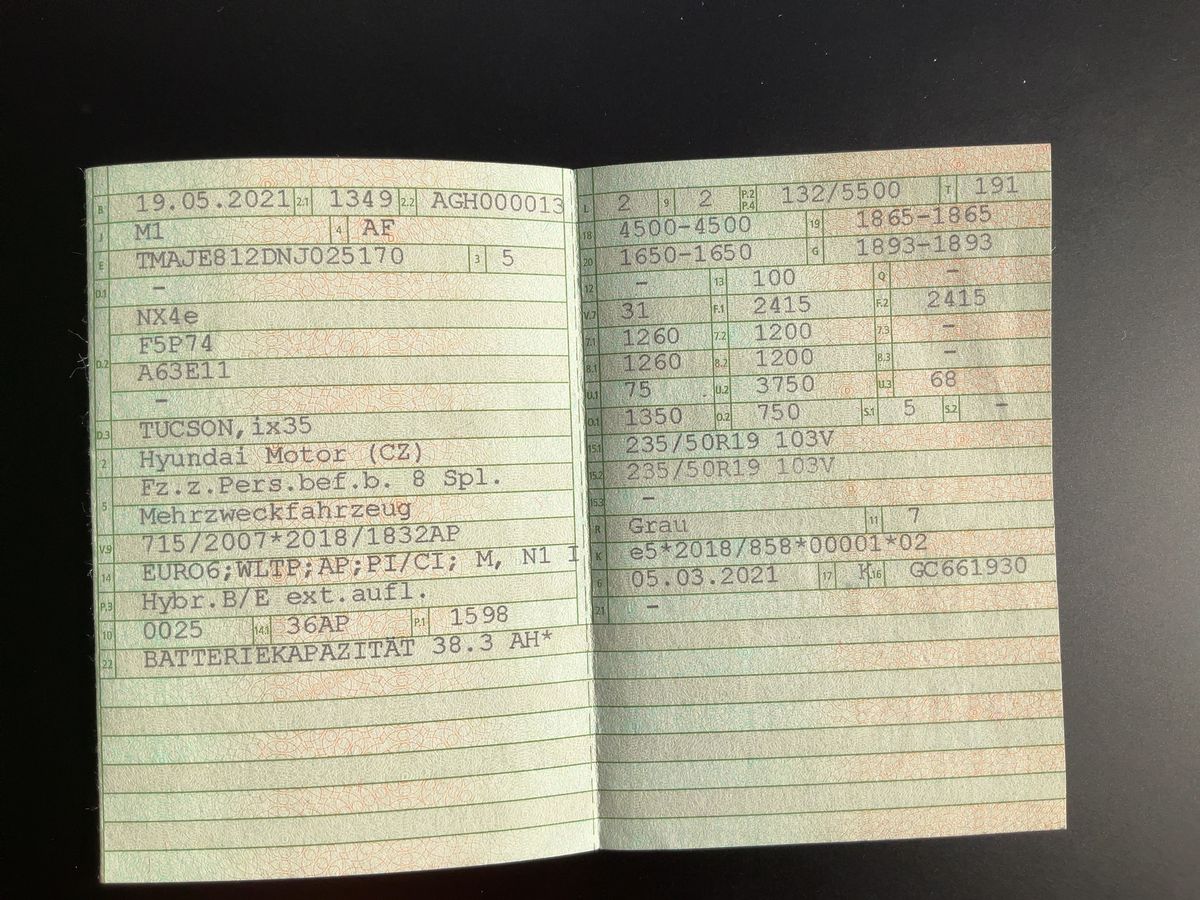 B 19.05.2021 2.1 1349 2.2 AGH000013
J M1 4 AF
E TMAJE812DNJ025170 3 5
D.1 –
NX4e
D.2 F5P74
A63E11
–
D.3 TUCSON,ix35
2 Hyundai Motor (CZ)
5 Fz.z.Pers.bef.b. 8 Spl.
Mehrzweckfahrzeug
V.9 715/2007*2018/1832AP
14 EURO6;WLTP;AP;PI/CI; M, N1 I
P.3 Hybr.B/E ext.aufl.
10 0025 14.1 36AP P.1 1598
22 BATTERIEKAPAZITÄT 38.3 AH*
L 2 9 2 P.2 P.4 132/5500 T 191
18 4500-4500 19 1865-1865
20 1650-1650 G 1893-1893
12 – 13 100 Q –
V.7 31 F.1 2415 F.2 2415
7.1 1260 7.2 1200 7.3 –
8.1 1260 8.2 1200 8.3 –
U.1 75 U.2 3750 U.3 68
O.1 1350 O.2 750 S.1 5 S.2 –
15.1 235/50R19 103V
15.2 235/50R19 103V
15.3 –
R Grau 11 7
K e5*2018/858*00001*02
6 05.03.2021 17 K 16 GC661930
21 –